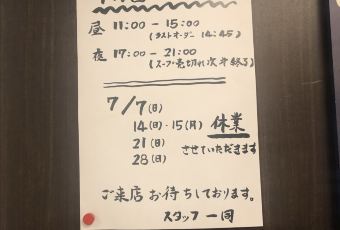 昼 11:00 - 15:00
(ラストオーダー 14:45)
夜 17:00 - 21:00
(スープ売切れ次第終了)
7/7(日)
14(日)・15(月) 休業
21(日) させていただきます
28(日)
ご来店お待ちしております。
スタッフ一同